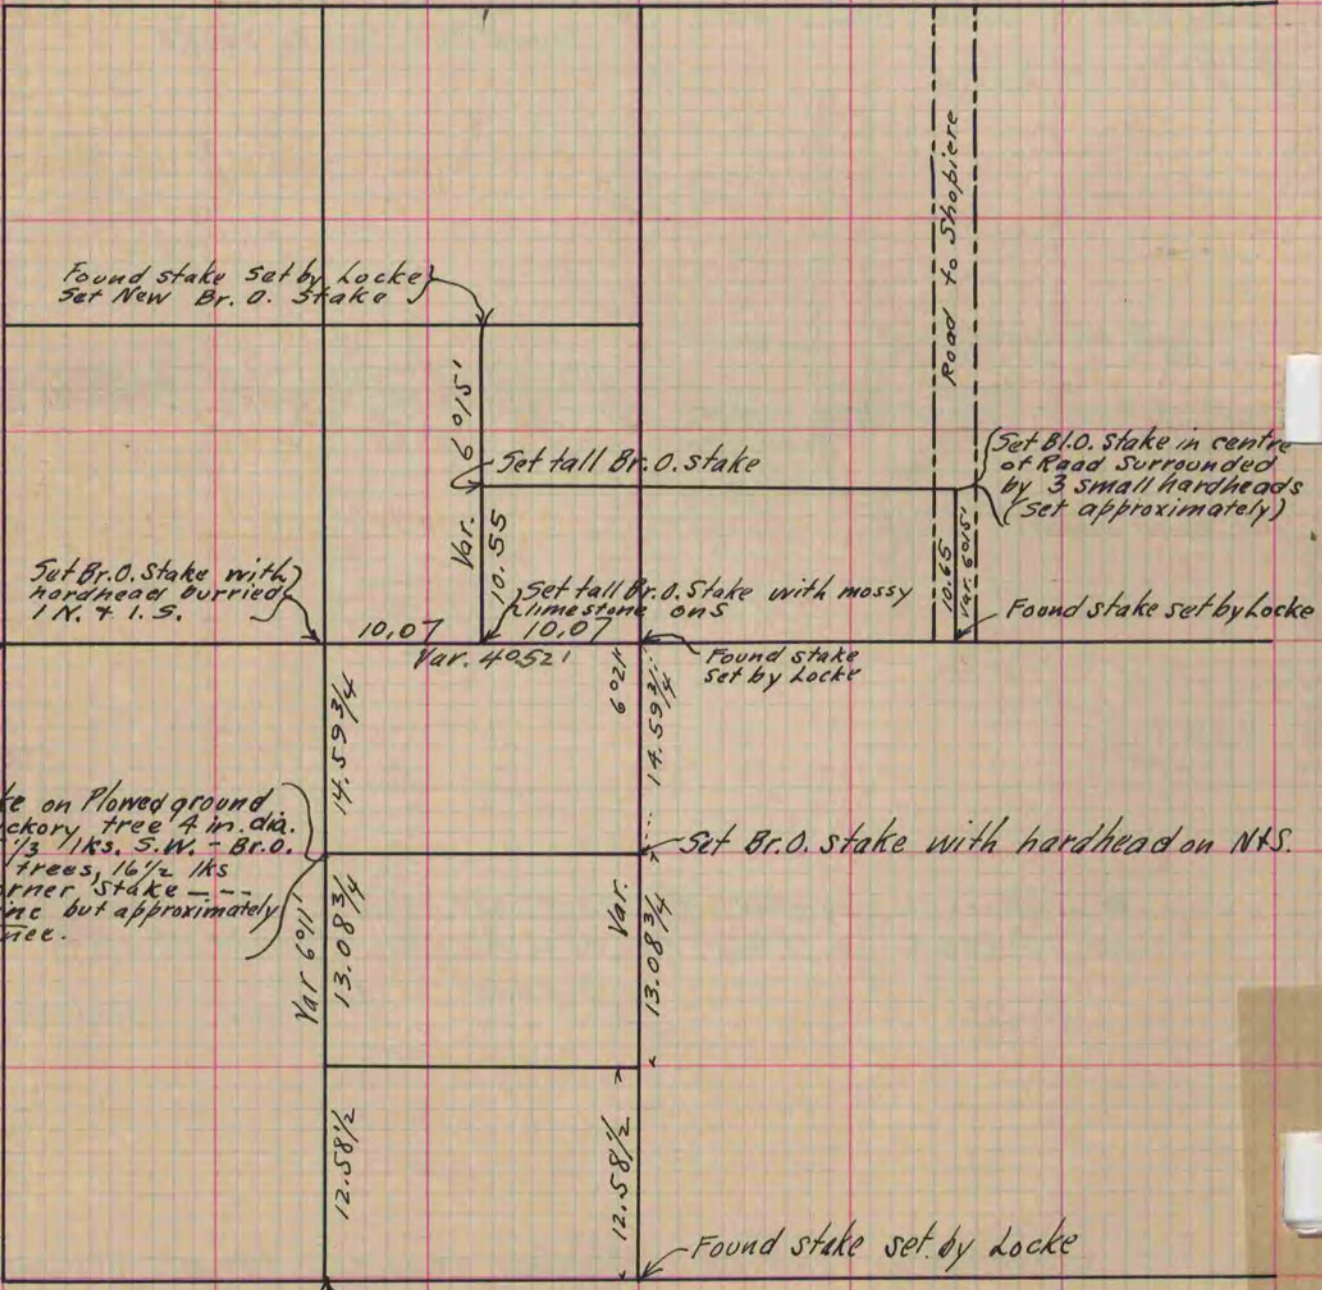 Road to Shopiere
Found stake set by Locke
Set New Br. O. Stake
Var. 6°15'
Set tall Br. O. stake
Set Bl.O. Stake in centre
of Raad Surrounded
by 3 small hardheads
(Set approximately)
10.55
10.65
Var. 6°15'
Set Br.O. Stake with
hardhead burried
1 N. & 1. S.
Set tall Br.O. Stake with mossy
limestone on S
Found stake set by Locke
10,07
10.07
Var. 4°52'
Found stake
set by Locke
6°21'
14.59 3/4
14.59 3/4
ke on Plowed ground
ckory tree 4 in. dia.
1/3 lks. S.W. - Br.O.
trees, 16 1/2 lks
rner Stake ---
ine but approximately
Set Br.O. stake with hardhead on N&S.
Var 6°11'
13.08 3/4
Var.
13.08 3/4
12.58 1/2
12.58 1/2
Found stake set by Locke